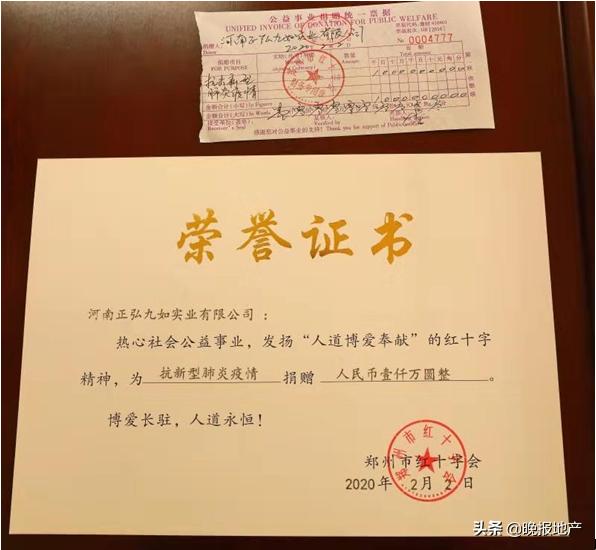 公益事业捐赠统一票据
UNIFIED INVOICE OF DONATION FOR PUBLIC WELFARE
河南正弘九如实业有限公司
捐赠人
Donor
2020
№ 0004777
捐赠项目
FOR PURPOSE
数量
金额
Total amount
抗击新型
肺炎疫情
金额合计(小写) In Figures
金额合计(大写) In Words
接受单位(盖章)
Receiver's Seal
Verified by
感谢您对公益事业的支持! Thank you for support of Public
荣誉证书
河南正弘九如实业有限公司：
热心社会公益事业，发扬“人道博爱奉献”的红十字
精神，为 抗新型肺炎疫情 捐赠 人民币壹仟万圆整 。
博爱长驻，人道永恒！
郑州市红十字会
2020年 2月 2日
郑州市红十字会
头条 @晚报地产